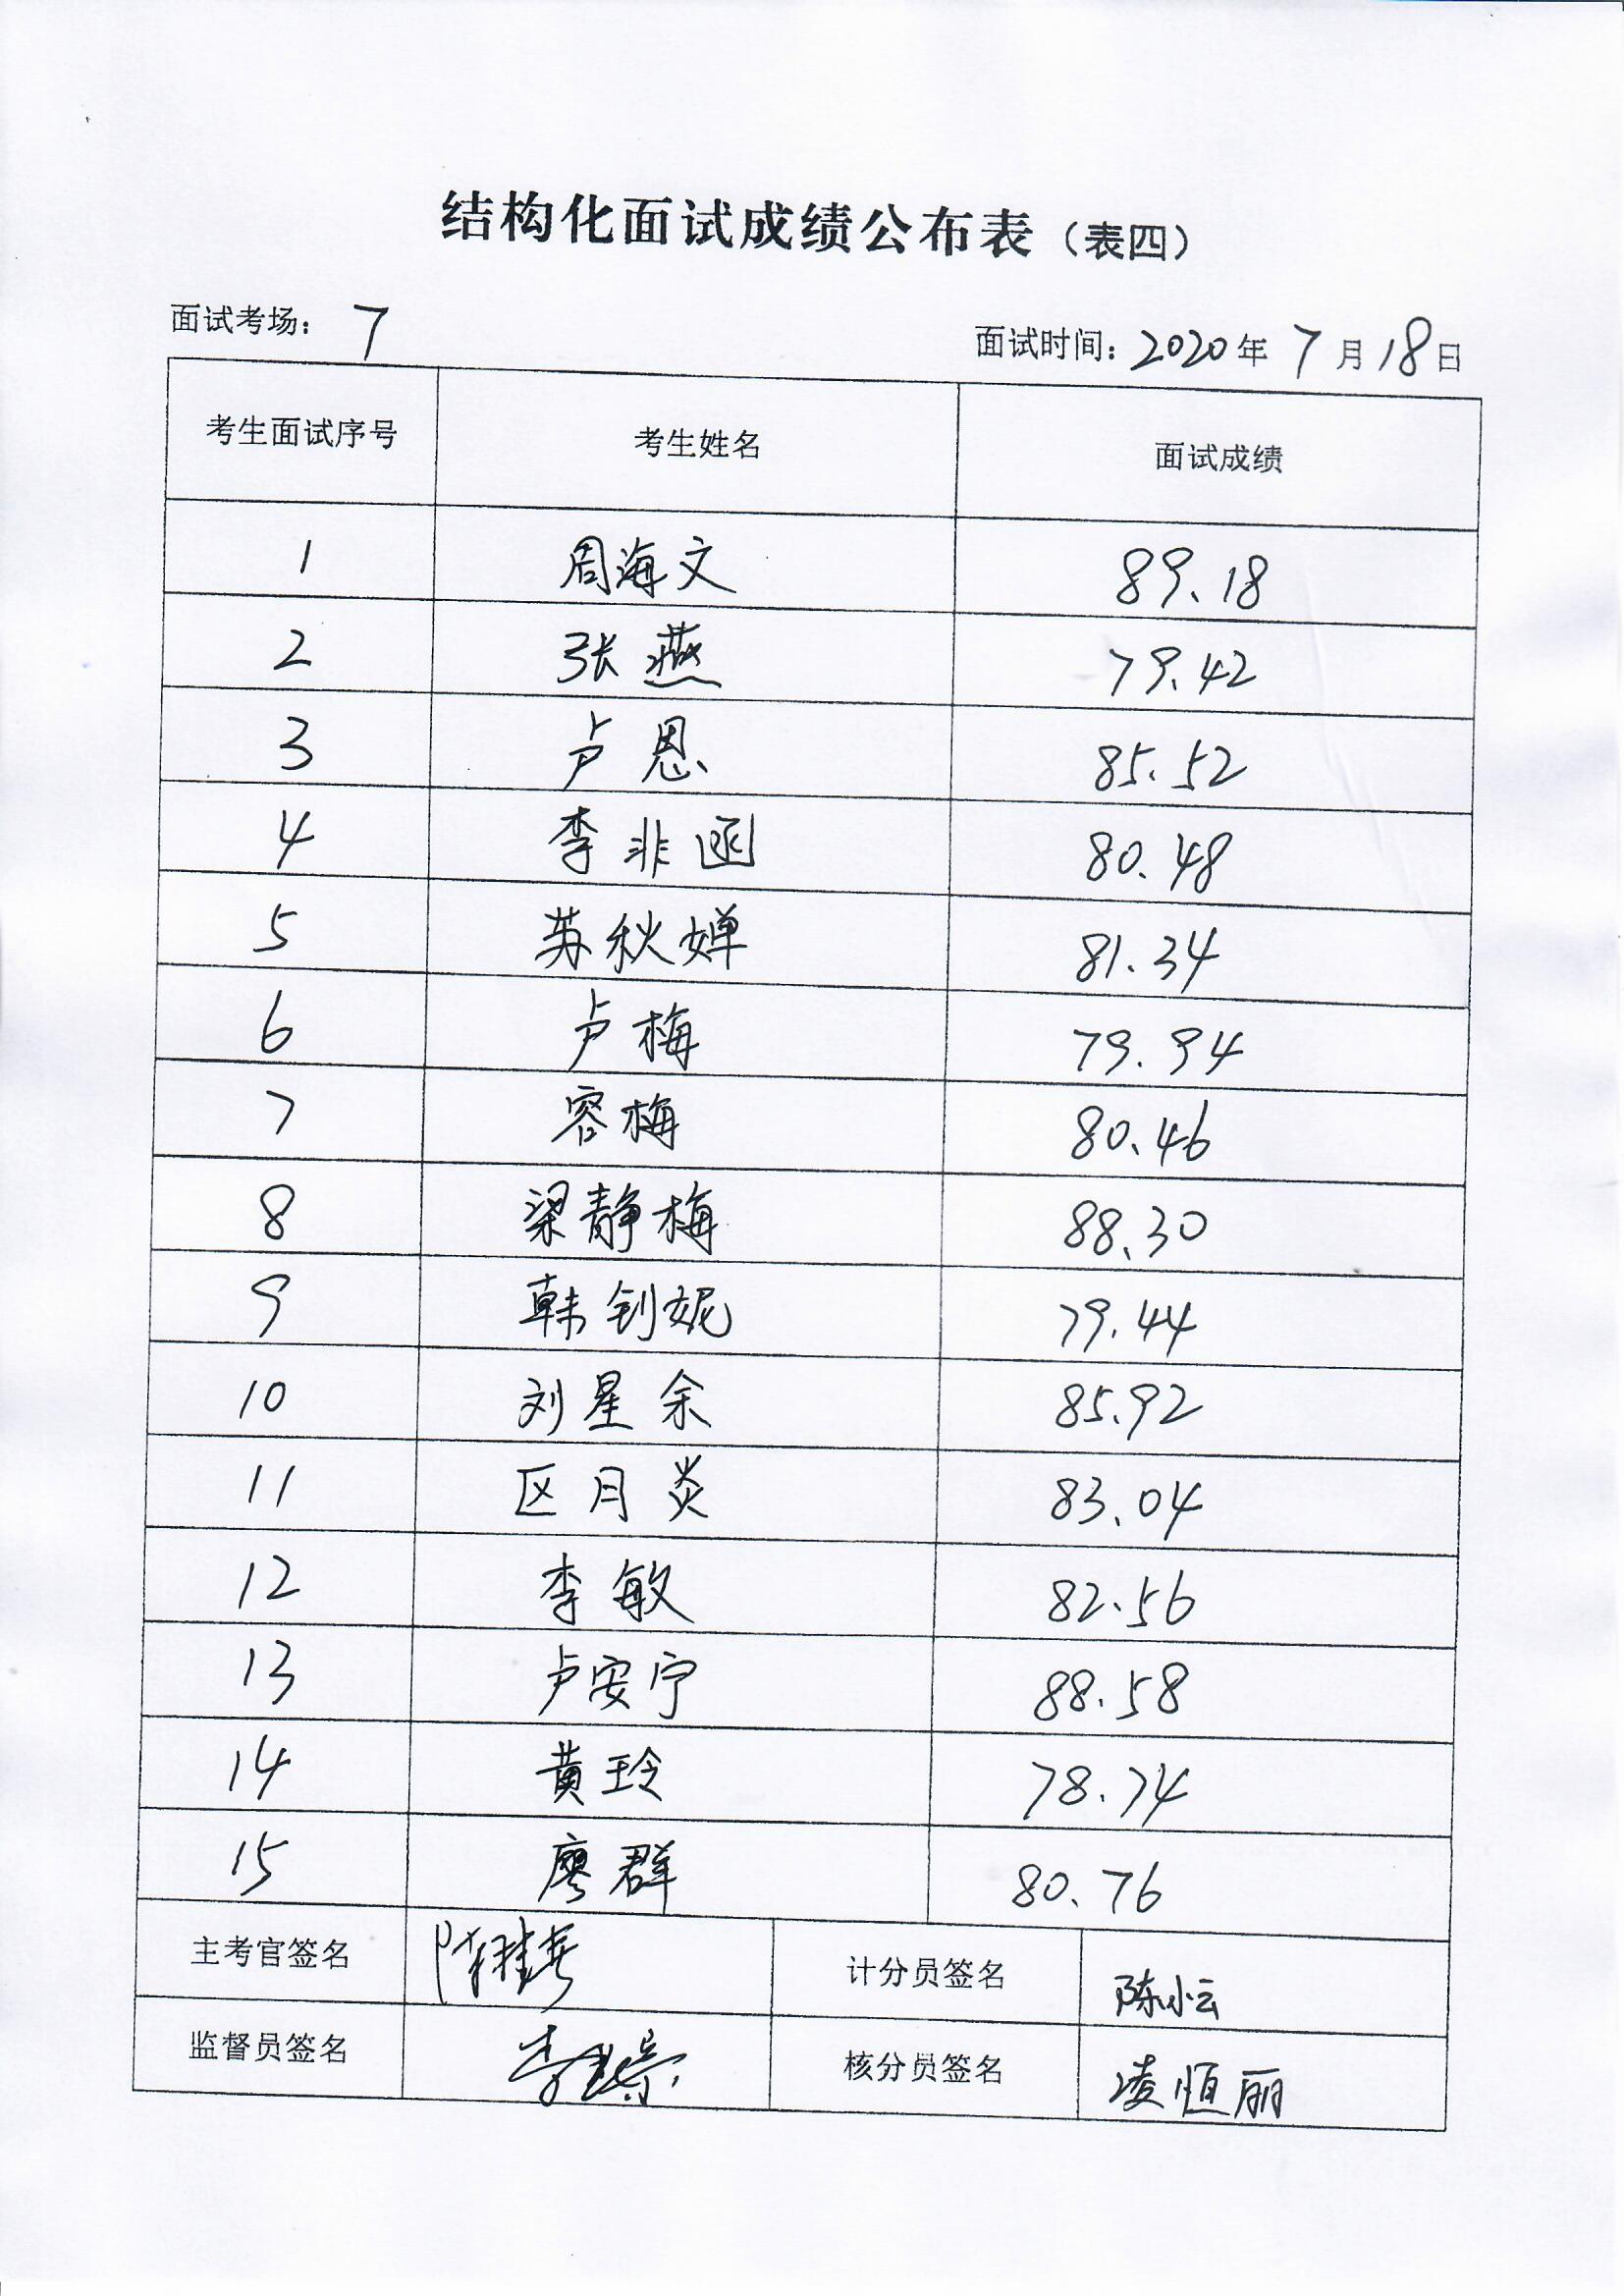 结构化面试成绩公布表（表四）
面试考场： 7 面试时间：2020年7月18日
考生面试序号 考生姓名 面试成绩
1 周海文 89.18
2 张燕 79.42
3 卢恩 85.52
4 李非函 80.48
5 苏秋婵 81.34
6 卢梅 79.94
7 容梅 80.46
8 梁静梅 88.30
9 韩钊妮 79.44
10 刘星余 85.92
11 区月炎 83.04
12 李敏 82.56
13 卢安宁 88.58
14 黄玲 78.74
15 廖群 80.76
主考官签名 计分员签名 陈小云
监督员签名 核分员签名 凌恒丽